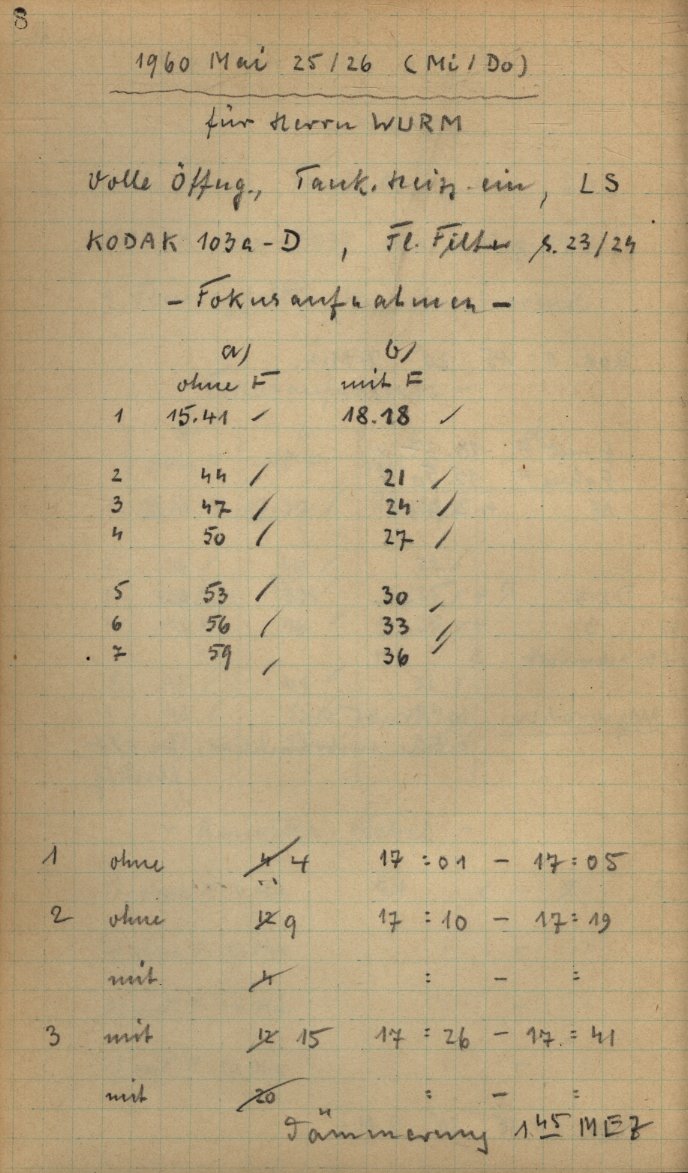 8
1960 Mai 25/26 (Mi/Do)
für Herrn WURM
Volle Öffng., Tauk. Heizg. ein, LS
KODAK 103a-D, Fl. Filter s. 23/24
- Fokusaufnahmen -
a) b)
ohne F mit F
1 15.41 ✓ 18.18 ✓
2 44 ✓ 21 ✓
3 47 ✓ 24 ✓
4 50 ✓ 27 ✓
5 53 ✓ 30 ✓
6 56 ✓ 33 ✓
7 59 ✓ 36 ✓
1 ohne 4 4 17:01 - 17:05
2 ohne 12 9 17:10 - 17:19
mit 4 : - :
3 mit 12 15 17:26 - 17:41
mit 20 : - :
Dämmerung 1.45 MEZ